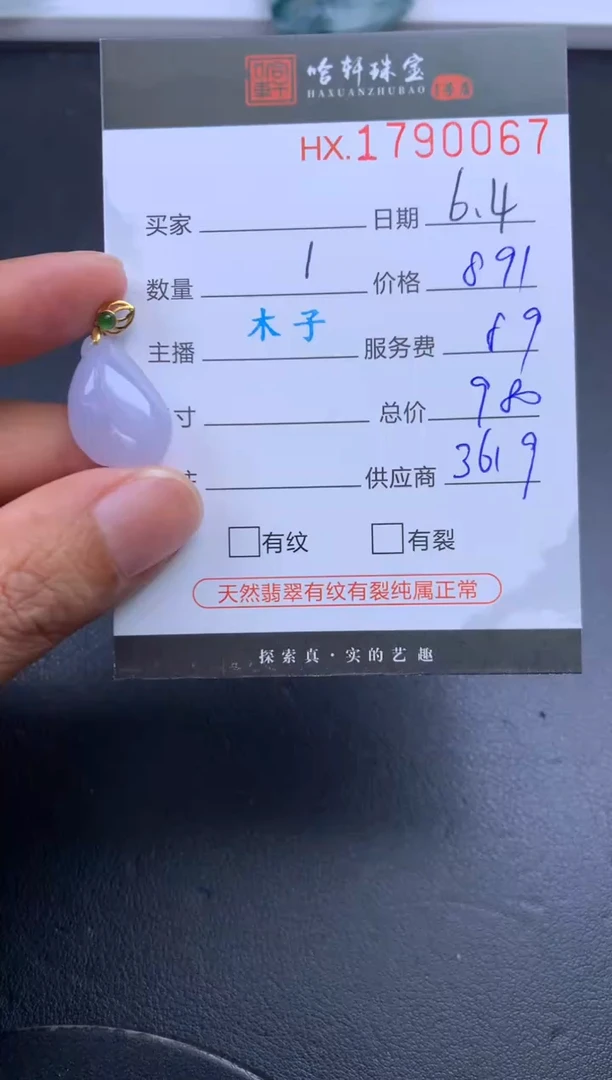 哈轩珠宝
HAXUANZHUBAO
HX.1790067
买家 日期 6.4
数量 1 价格 891
主播 木子 服务费 89
寸 总价 980
供应商 3619
有纹 有裂
天然翡翠有纹有裂纯属正常
探索真·实的艺趣